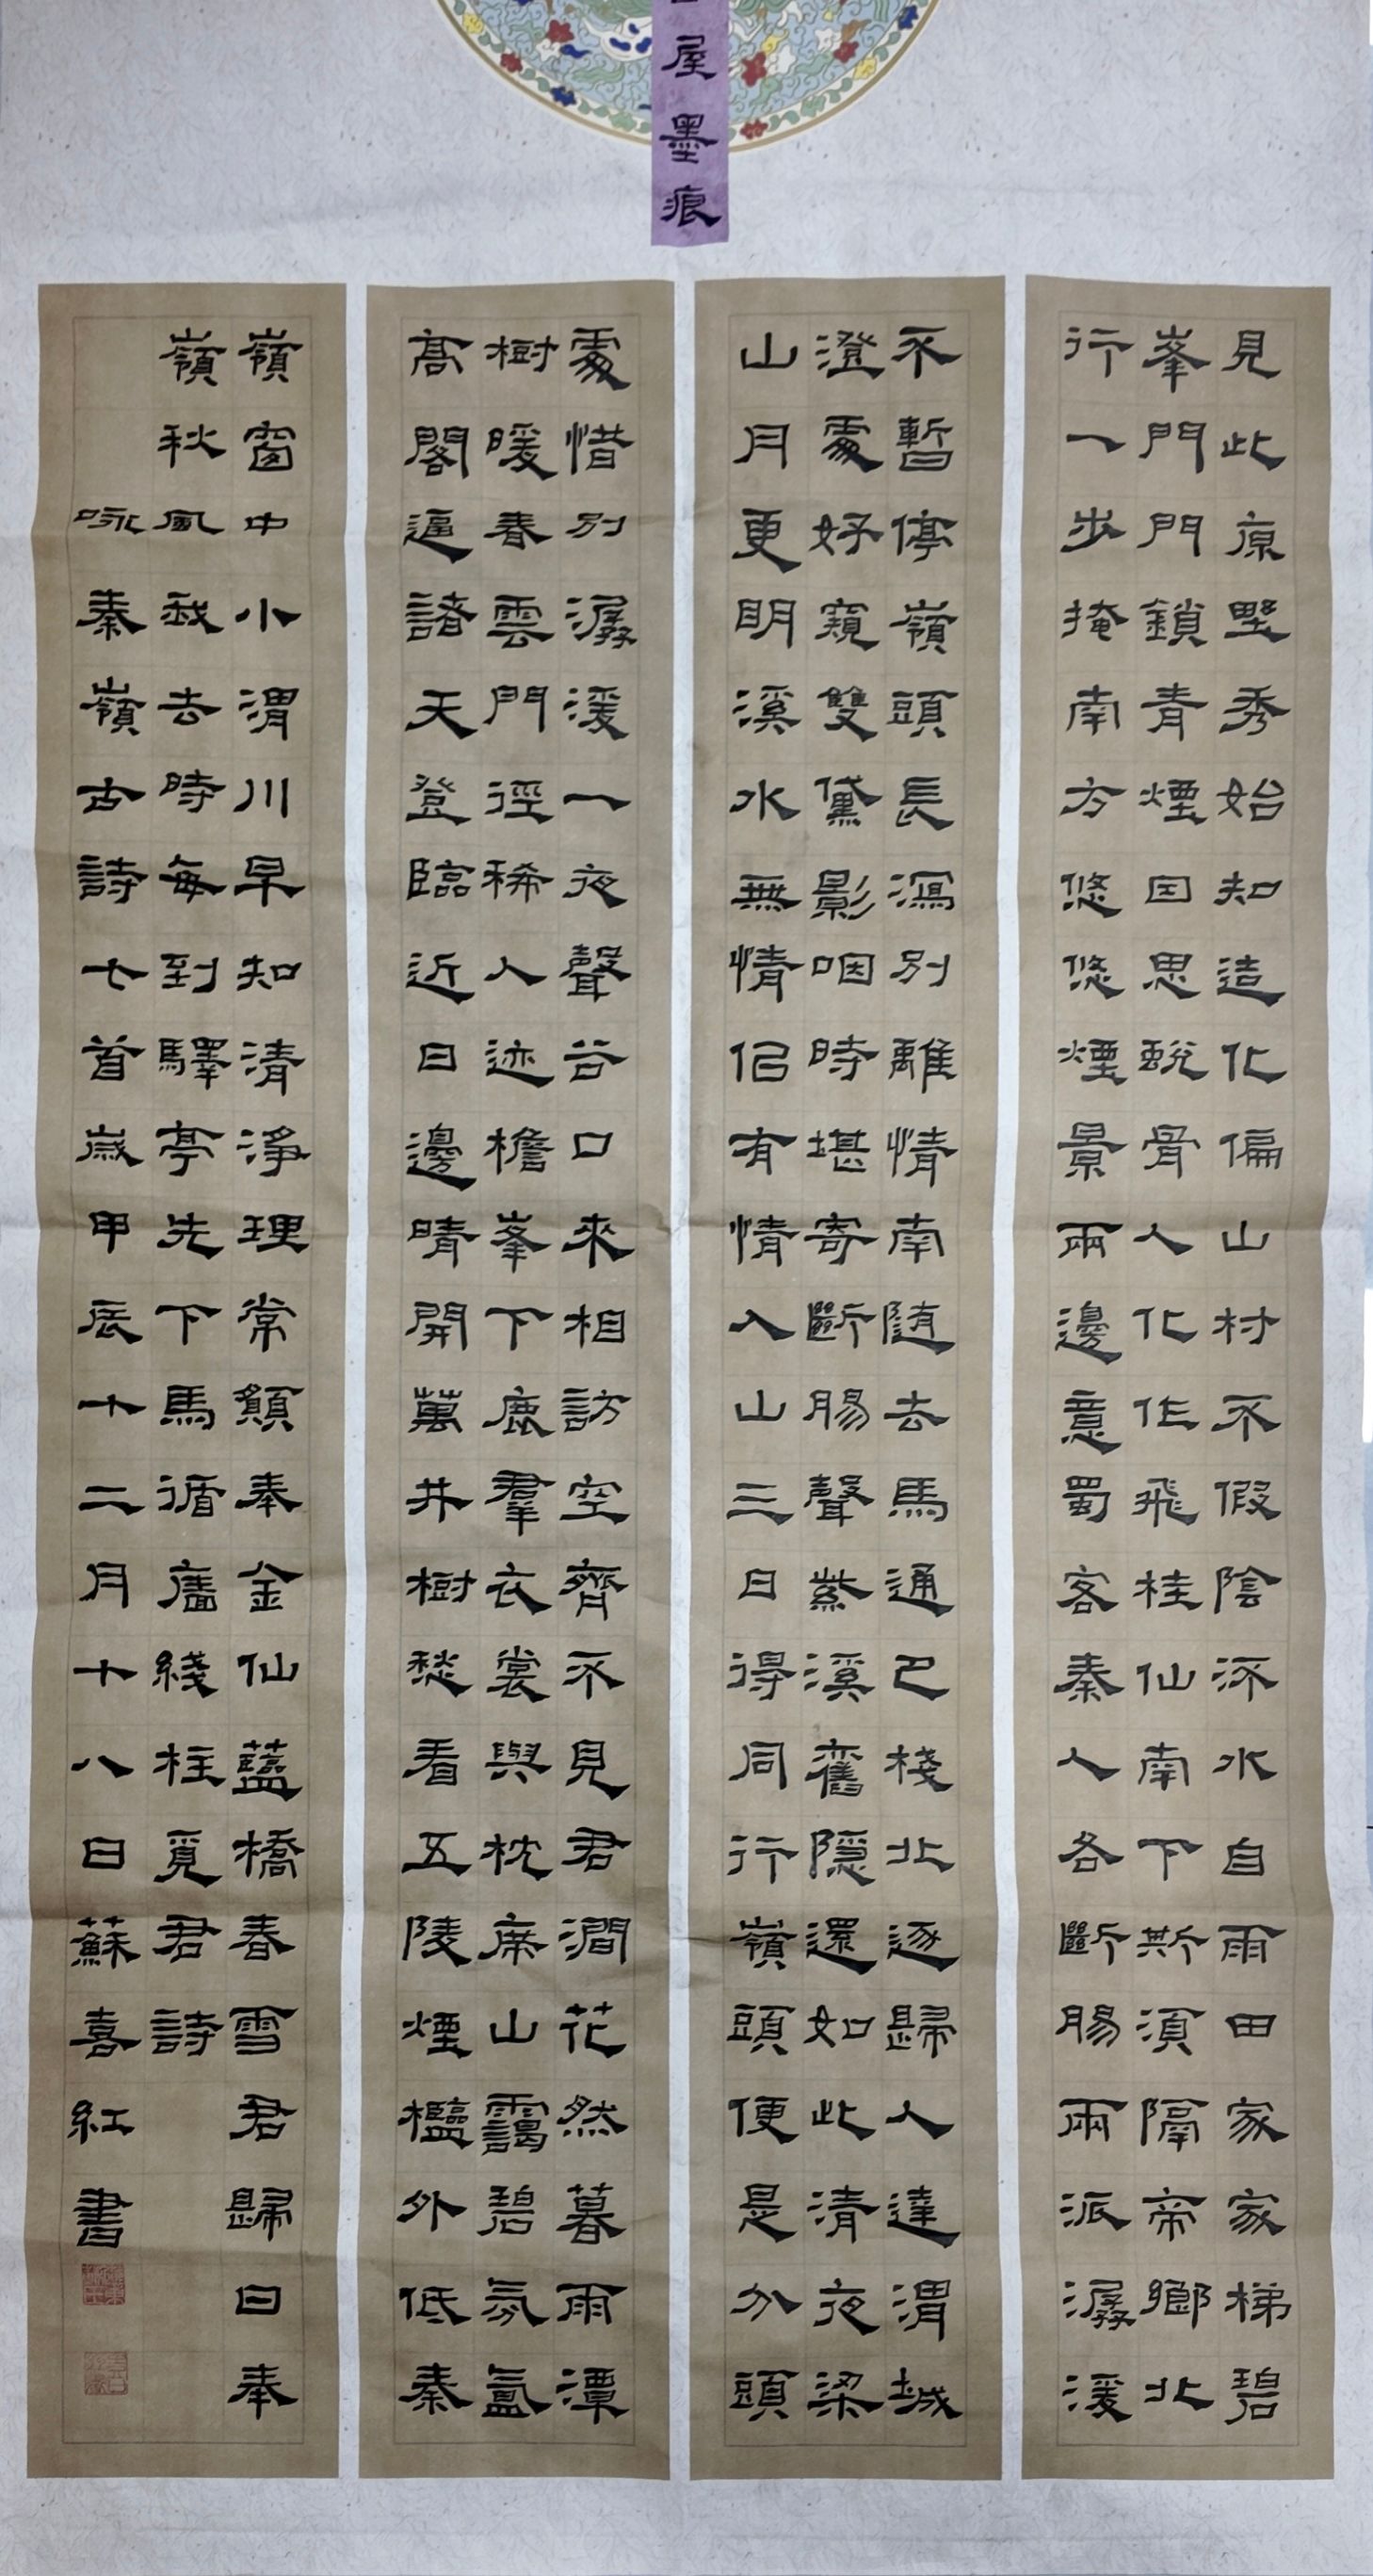 屋墨痕
見此原野秀始知造化偏山村不假陰流水自雨田家家梯碧
峯門門鎖青煙因思蛻骨人化作飛桂仙南下斯須隔帝鄉北
行一步掩南方悠悠煙景兩邊意蜀客秦人各斷腸兩派潺湲
不暫停嶺頭長瀉別離情南隨去馬通巴棧北逐歸人達渭城
澄處好窺雙黛影咽時堪寄斷腸聲紫溪舊隱還如此清夜梁
山月更明溪水無情似有情入山三日得同行嶺頭便是分頭
處惜別潺湲一夜聲谷口來相訪空齋不見君澗花然暮雨潭
樹暖春雲門徑稀人迹檐峯下鹿羣衣裳與枕席山靄碧氛氳
高閣逼諸天登臨近日邊晴開萬井樹愁看五陵煙檻外低秦
嶺窗中小渭川早知清淨理常願奉金仙藍橋春雪君歸日奉
嶺秋風我去時每到驛亭先下馬循廧繞柱覓君詩
咏秦嶺古詩七首歲甲辰十二月十八日蘇喜紅書